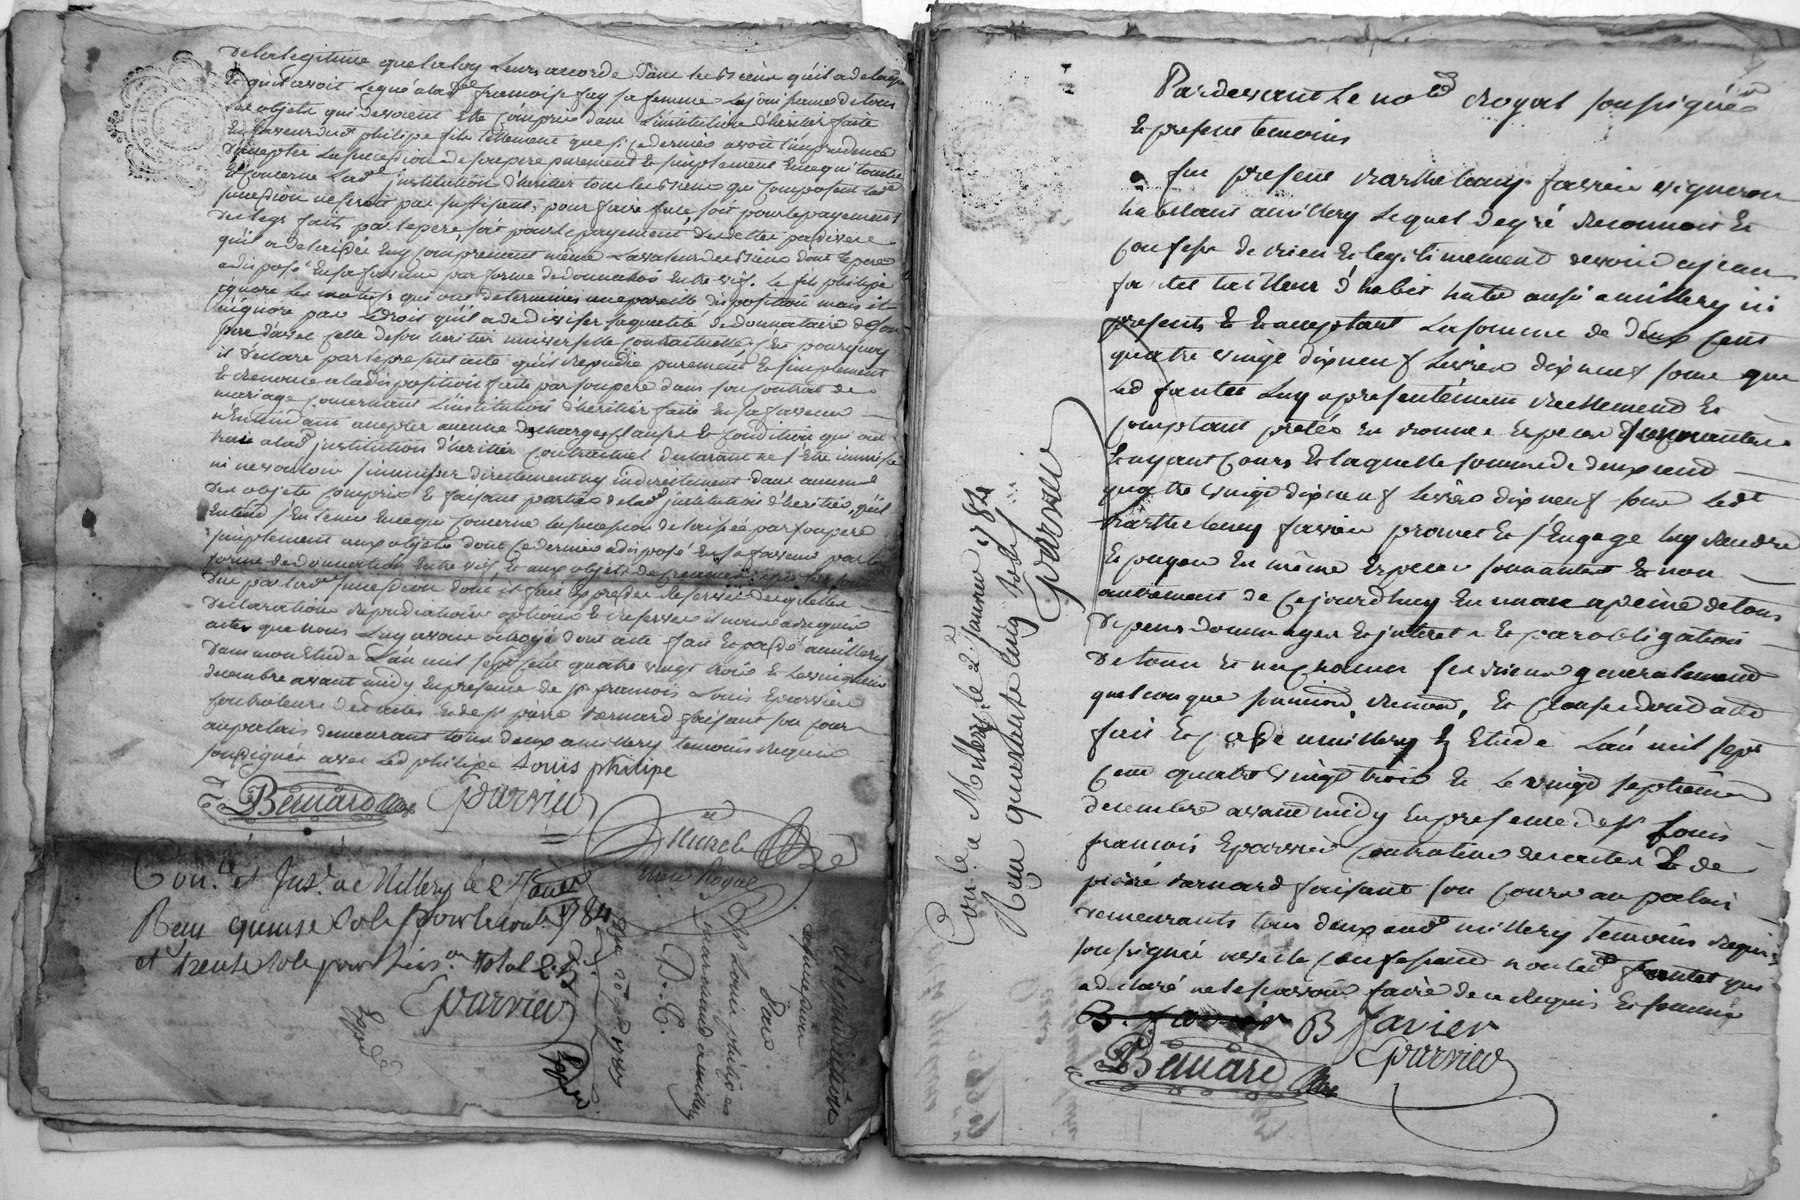 de la legitime que la loy leurs acorde dans les biens qu'il a delaissé
et qu'il avoit legué a lad françoise fay sa femme la jouissance de tous
les objets qui devoient etre compris dans l'institution d'heritier faite
en faveur dud philipe fils tellement que si ce dernier avoit l'imprudence
d'accepter la succession de son pere purement et simplement en ce qui touche
et concerne lade institution d'heritier tous les biens qui composent lade
succession ne seroit pas suffisant pour faire face soit pour le payement
des legs faits par le pere, soit pour le payement des dettes passives
qu'il a delaissée en y comprenant même la valeur des biens dont le pere
a disposé en sa faveur par forme de donnation entre vifs. le fils philipe
ignore les motifs qui ont determiner une pareille disposition mais il
n'ignore pas le droit qu'il a de diviser sa qualité de donnataire de son
pere d'avec celle de son heritier universelle contractuelle, c'est pourquoy
il declare par le present acte qu'il repudie purement et simplement
et renonce a la disposition faite par son pere dans son contrat de
mariage concernant l'institution d'heritier faite en sa faveur
n'entendant accepter aucune des charges clauses et condition qui ont
trait a lad institution d'heritier contractuel declarant ne s'etre immissé
ni ne vouloir s'immisser directement ny indirectement dans aucuns
des objets compris et faisant parties de lad institution d'heritier, qu'il
entend s'en tenir en ce qui concerne la succession delaissée par son pere
simplement aux objets dont ce dernier a disposé en sa faveur par la
forme de donnation entre vifs, et aux objets de creances
due par lade succession dont il fait expresse reserve desquelles
declarations repudiation options et reserves il nous a requis
actes que nous luy avons octroyé dont acte fait et passé a millery
dans mon etude l'an mil sept cent quatre vingt trois et le vingt
decembre avant midy en presence de sr francois Louis Eparvier
controleur des actes et de sr pierre Bernard faisant son cour
au palais demeurant tous deux a millery temoins requis
soussignés avec led philipe Louis philipe
Bernard Eparvier
Con.lé et Jns. a Millery le 2 Janer
Reçu quinse sols pour le cont. 1784
et trente sols pour l'ins.on total 2.5
Eparvier
notre Royal
Repudiation
par
Srs Louis philipe
marchand a millery
Pardevant le not royal soussignée
et presens temoins
fut present Barthelemy favier vigneron
habitant a millery lequel de gré reconnoit et
confesse de bien et legitimement devoir a jean
fantet tailleur d'habit habt aussi a millery ici
presents et acceptant la somme de deux cent
quatre vingt dix neuf livres dix neuf sous que
led fantet luy a presentement reellement et
comptant pretés en bonnes especes sonnantes
et ayant cours et laquelle somme de deux cent
quatre vingt dix neuf livres dix neuf sous ledt
Barthelemy favier promet et s'engage luy rendre
et payer en même especes sonnantes et non
autrement de ce jourd'huy en un an a peine de tous
depens dommages et interet et par obligation
de tous et un chacun ses biens generalement
quelconque soumission, renon, et clauses dont acte
fait et passé a millery en etude l'an mil sept
cent quatre vingt trois et le vingt septieme
decembre avant midy en presence de sr Louis
francois Eparvier controleur des actes et de
pierre Bernard faisant son cours au palais
demeurants tous deux aud millery temoins requis
soussignés avec le confessant non led fantet qui
a declaré ne le savoir faire de ce requis et sommé
B. favier B favier
Bernard Eparvier
Con.lé a Millery le 2e Janvier 1784
Reçu quarante cinq sols
Eparvier